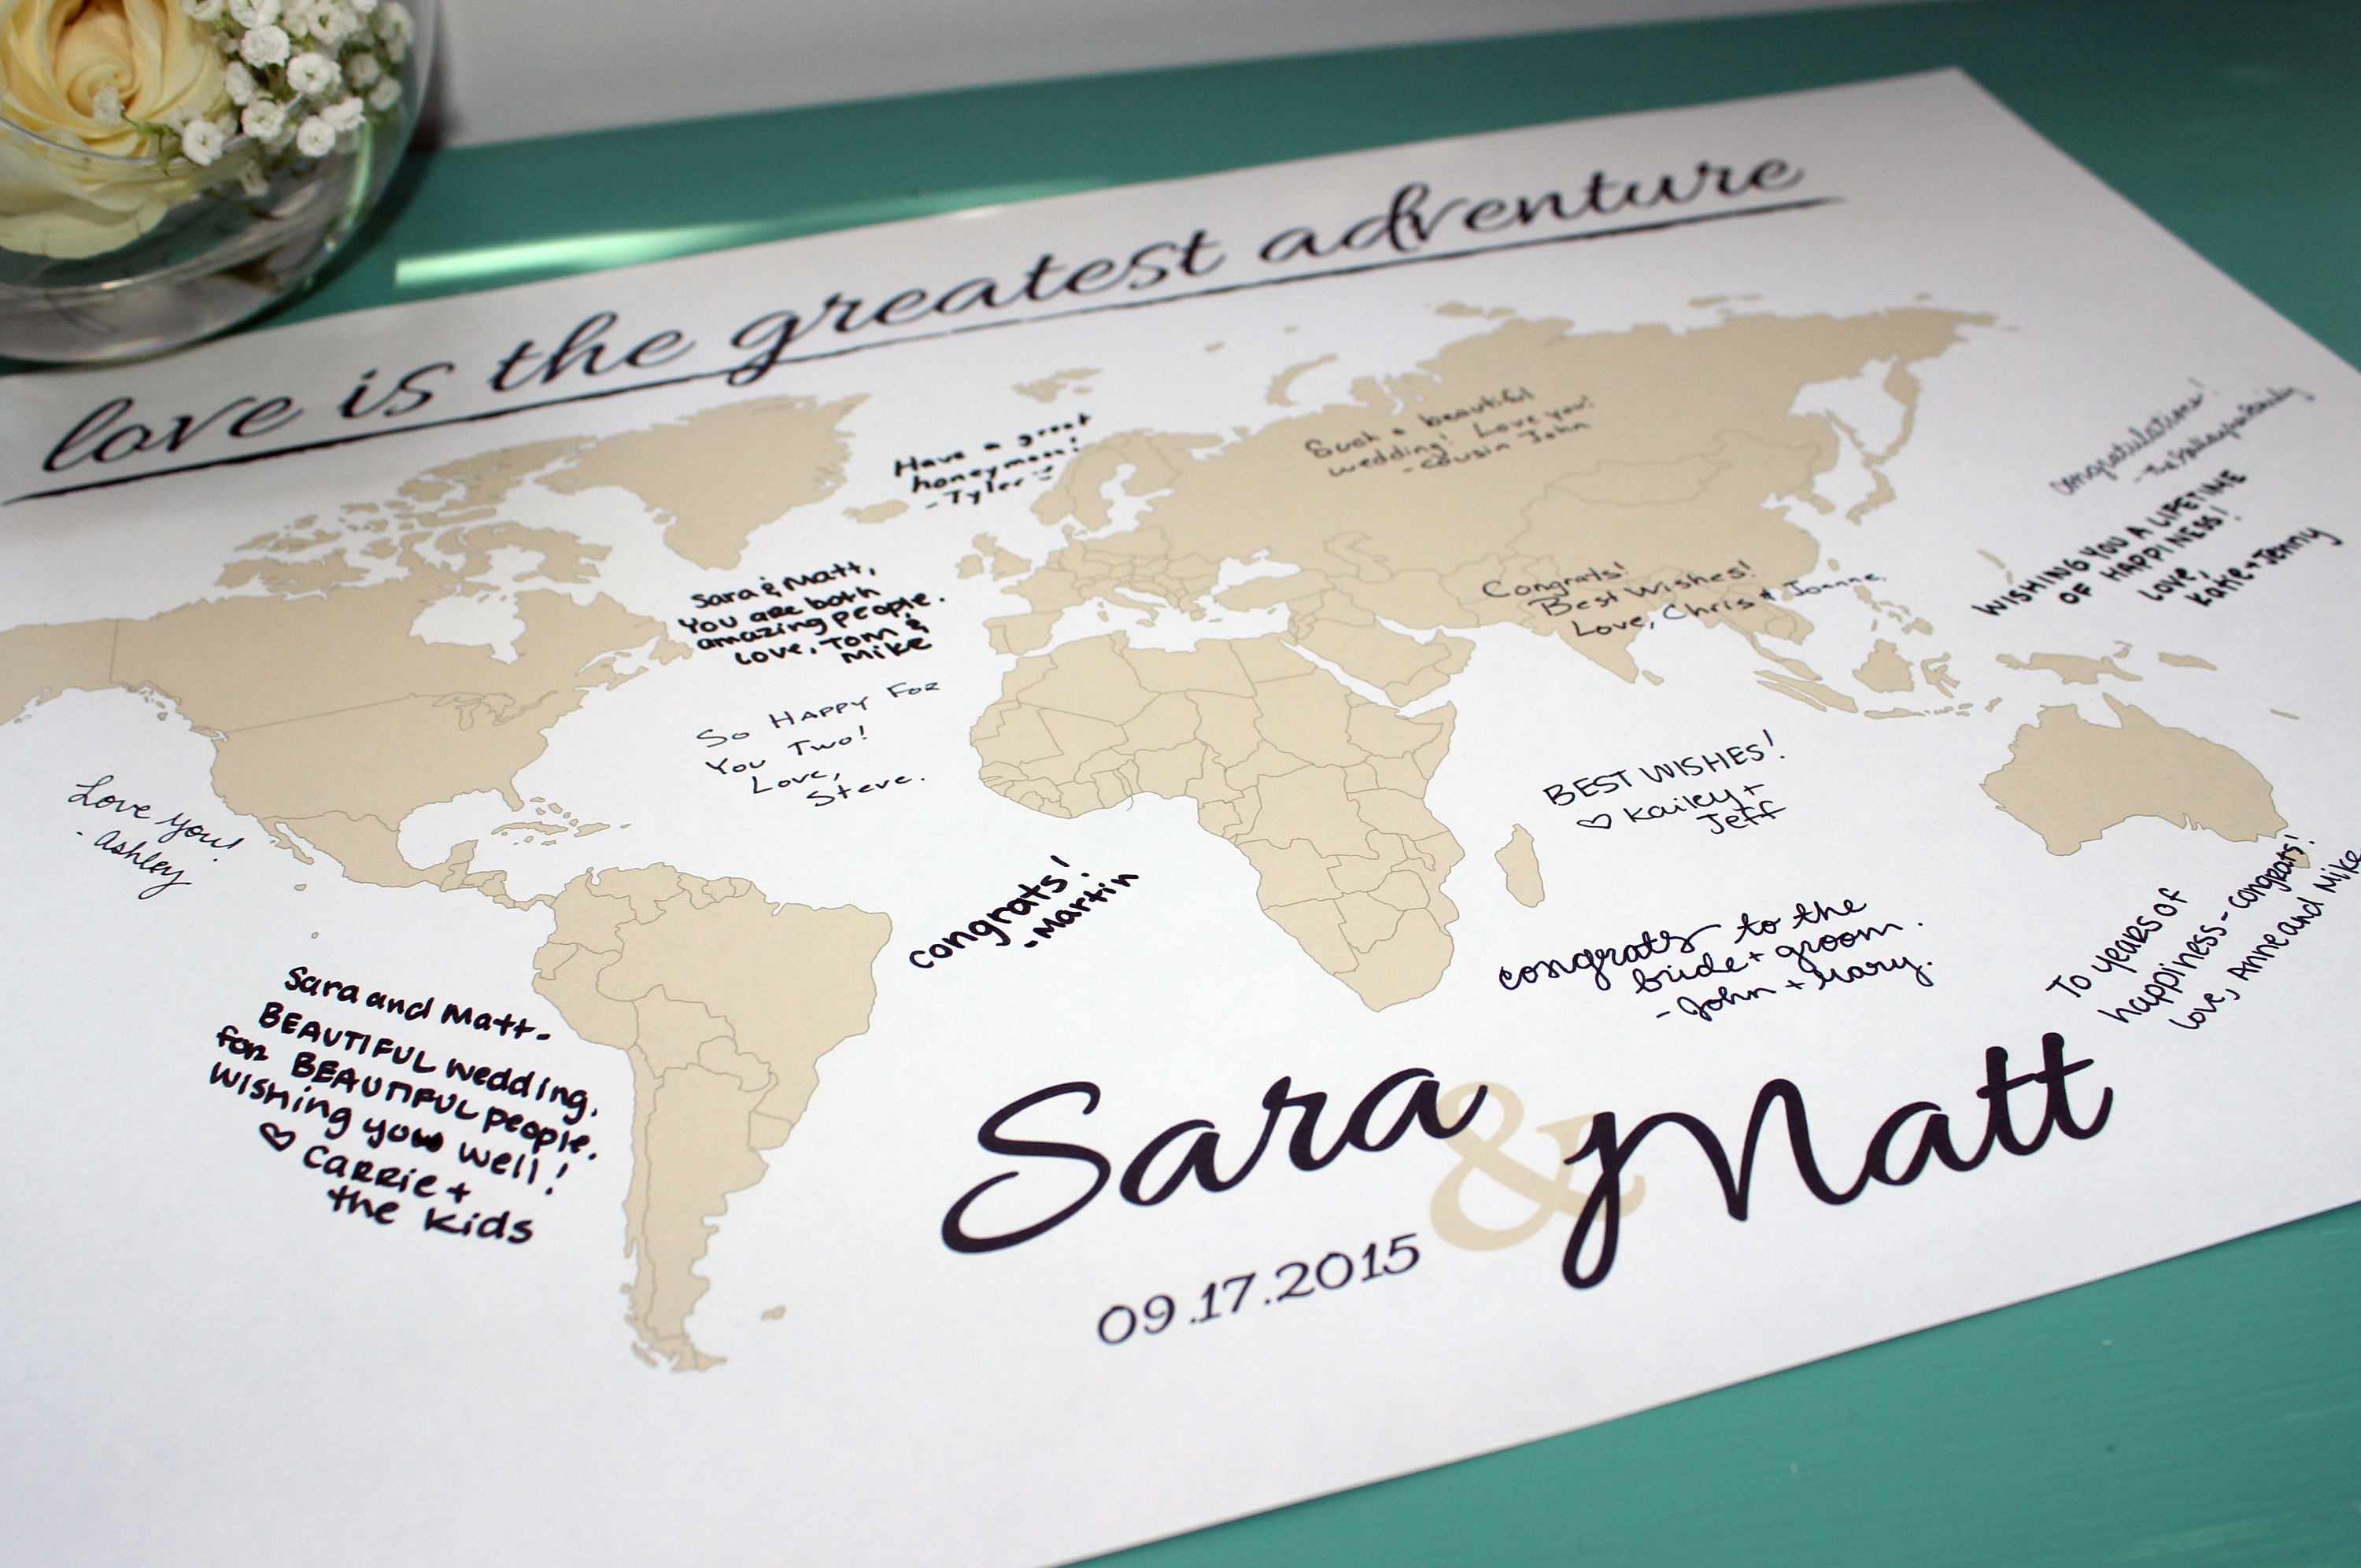 love is the greatest adventure
Have a great
honeymoon!
- Tyler
Such a beautiful
wedding! Love you!
- Cousin John
congratulations!
- The
WISHING YOU A LIFETIME
OF HAPPINESS!
Love,
Katie + Jenny
Sara & Matt,
You are both
amazing people.
Love, Tom &
Mike
Congrats!
Best Wishes!
Love, Chris + Joanne
So HAPPY FOR
You Two!
Love,
Steve.
Love you!
- Ashley
BEST WISHES!
♡ Kailey +
Jeff
congrats!
- Martin
congrats to the
bride + groom.
- John + Mary.
To years of
happiness - congrats!
Love, Anne and Mike
Sara and Matt -
BEAUTIFUL wedding,
for BEAUTIFUL people.
Wishing you well!
♡ CARRie +
the kids
Sara & Matt
09.17.2015